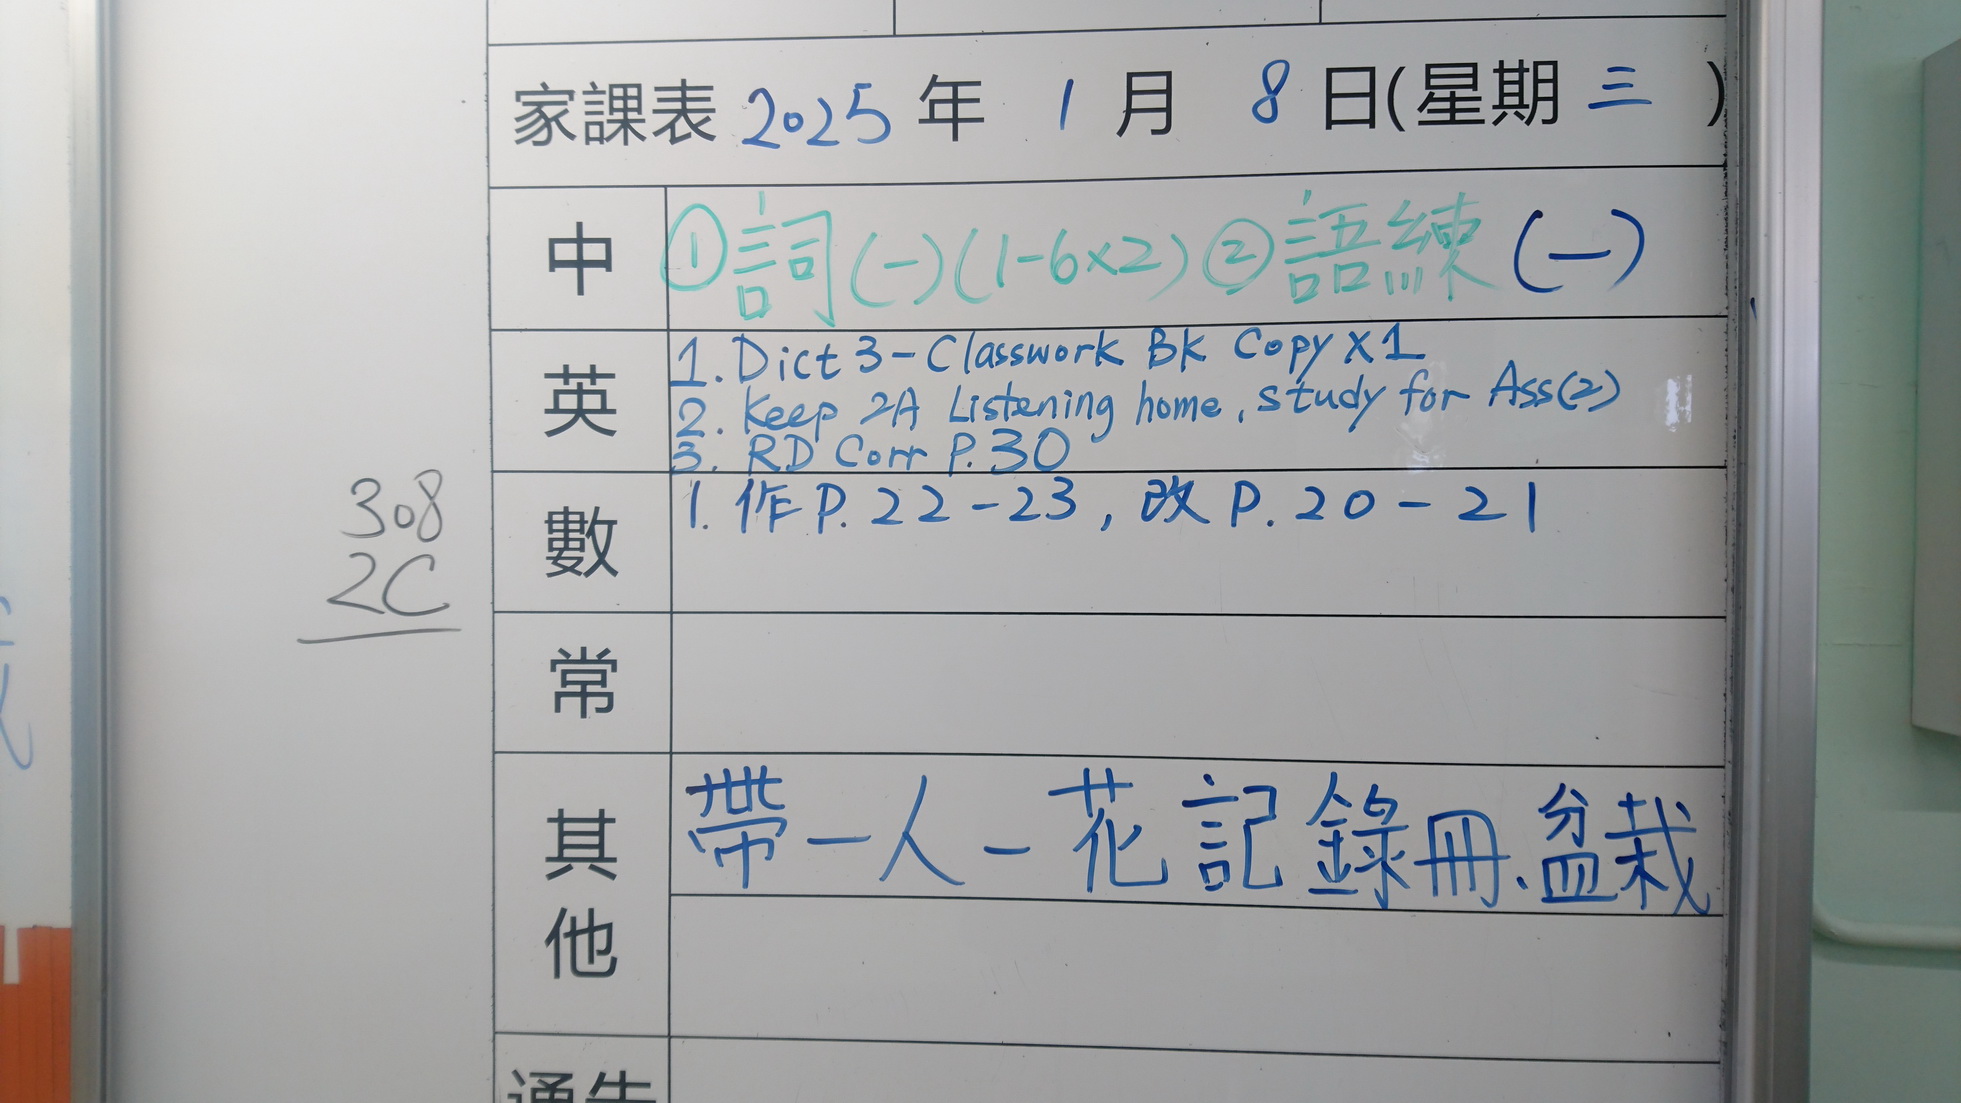 家課表 2025 年 1 月 8 日(星期 三 )
中 ①詞(一)(1-6×2) ②語練(一)
英 1. Dict 3 - Classwork Bk Copy X 1
2. Keep 2A Listening home, study for Ass(2)
3. RD Corr P.30
數 1. 作 P. 22 - 23 , 改 P. 20 - 21
308
2C
常
其他 帶一人一花記錄冊、盆栽
通告